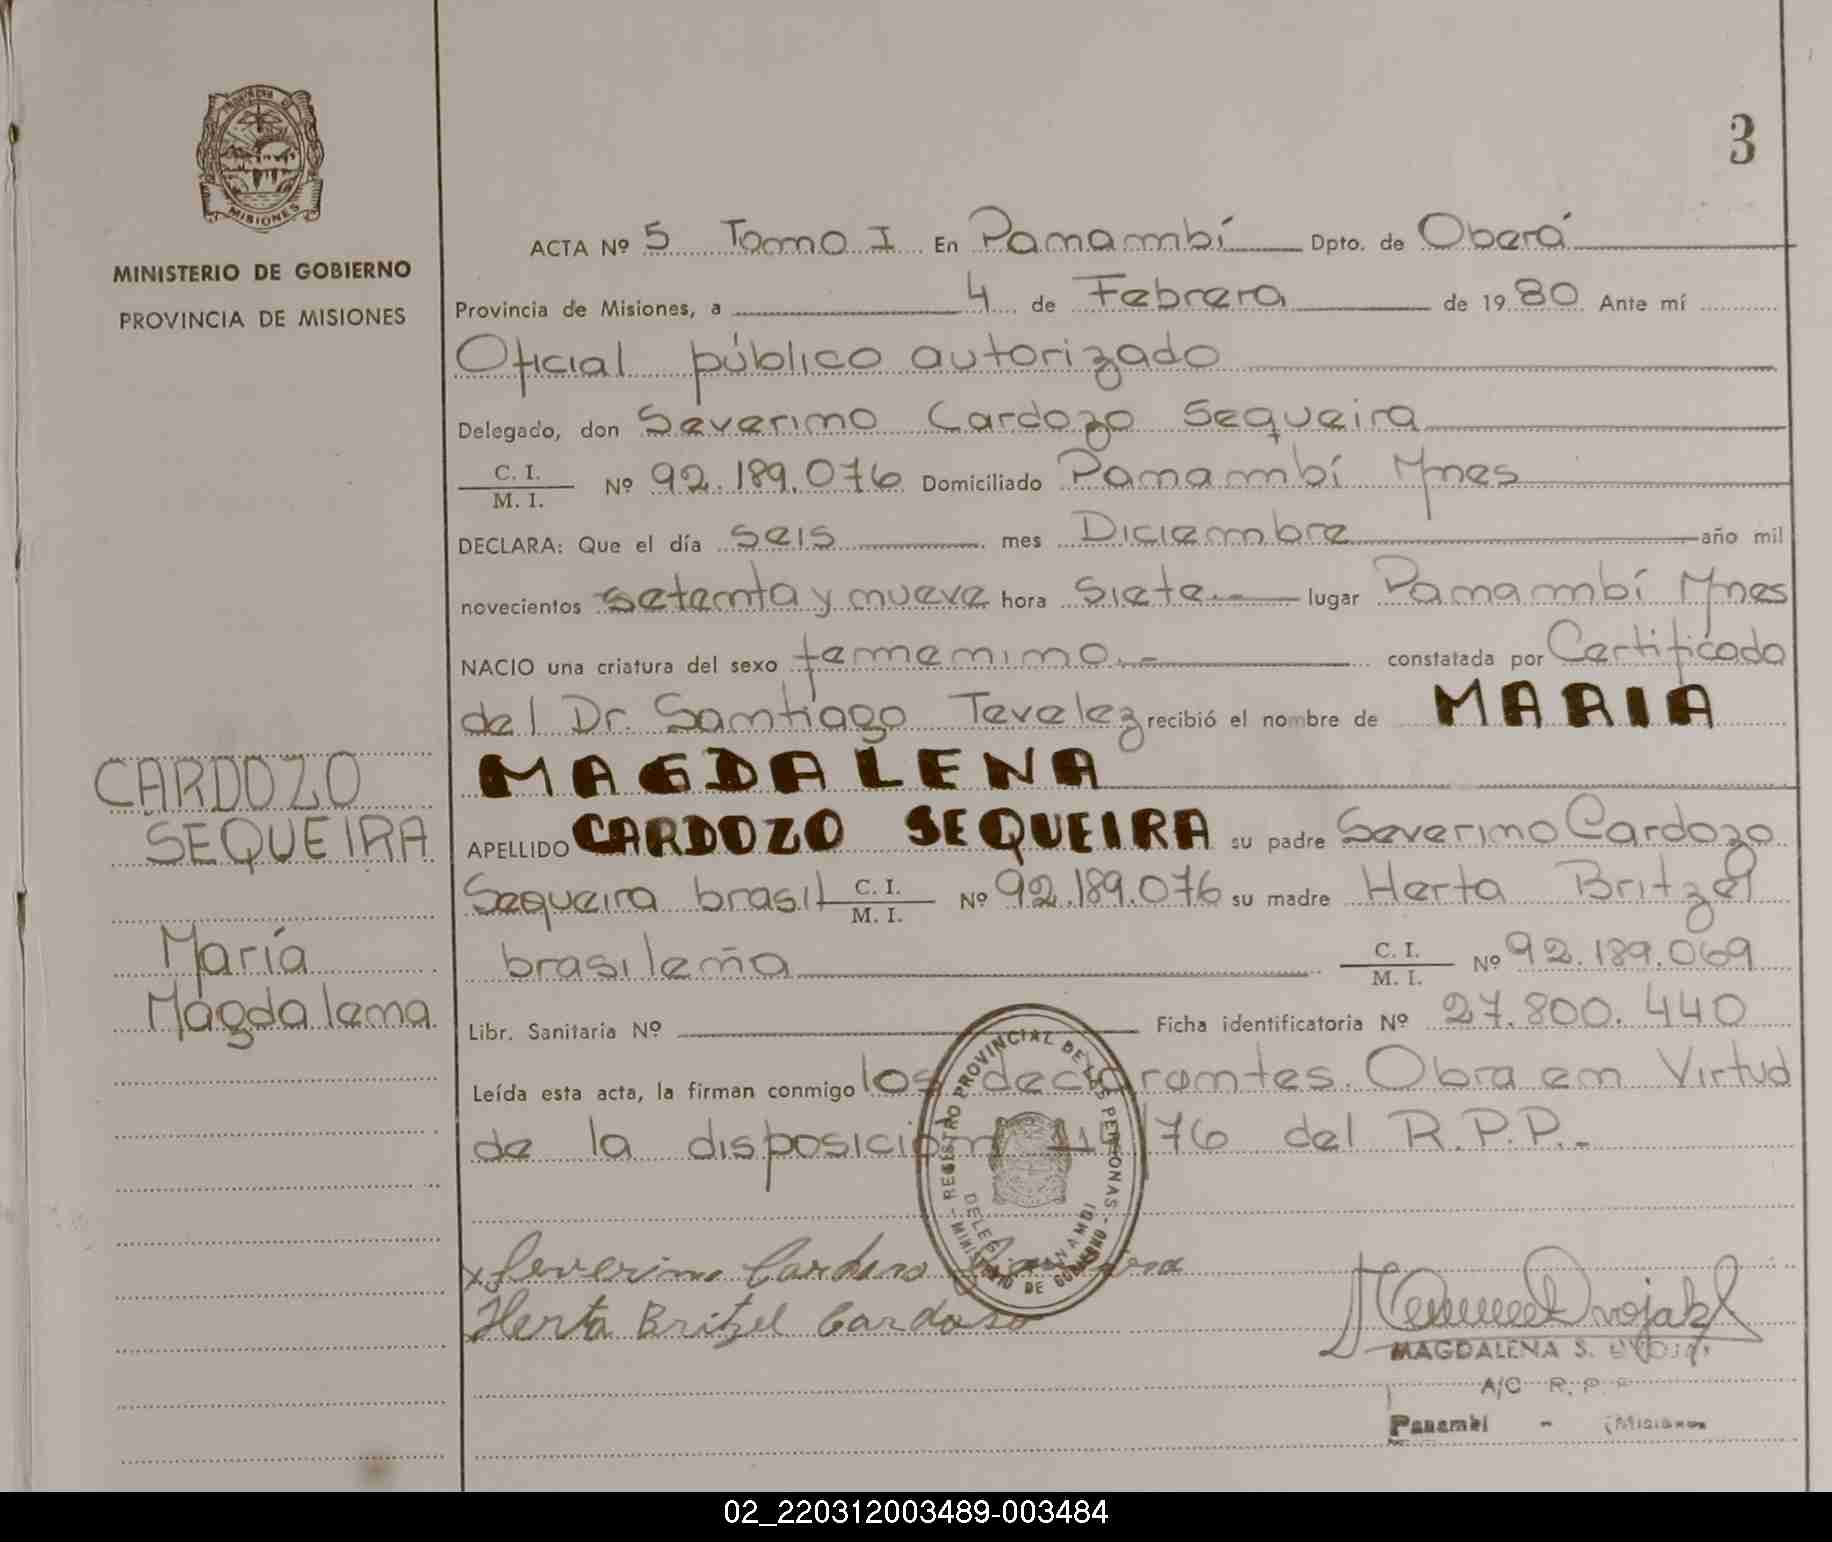 3
PROVINCIA DE
MISIONES
MINISTERIO DE GOBIERNO
PROVINCIA DE MISIONES
ACTA Nº 5 Tomo I En Panambí Dpto. de Oberá
Provincia de Misiones, a 4 de Febrero de 1980 Ante mí
Oficial público autorizado
Delegado, don Severino Cardozo Sequeira
C. I.
M. I.
Nº 92.189.076 Domiciliado Panambí Mnes
DECLARA: Que el día seis mes Diciembre año mil
novecientos setenta y nueve hora siete.- lugar Panambí Mnes
NACIO una criatura del sexo femenino.- constatada por Certificado
del Dr. Santiago Tevelez recibió el nombre de MARIA
MAGDALENA
CARDOZO
SEQUEIRA
María
Magdalena
APELLIDO CARDOZO SEQUEIRA su padre Severino Cardozo
Sequeira brasil C. I.
M. I.
Nº 92.189.076 su madre Herta Britzel
brasileña C. I.
M. I.
Nº 92.189.069
Libr. Sanitaria Nº Ficha identificatoria Nº 27.800.440
Leída esta acta, la firman conmigo los declarantes. Obra en Virtud
de la disposición /76 del R.P.P.-
REGISTRO PROVINCIAL DE LAS PERSONAS
- MINISTERIO DE GOBIERNO -
PANAMBI
x Severino Cardozo
Herta Britzel Cardoso
Dvojak
MAGDALENA S.
A/C R. P. P.
Panambí - (Misiones
02_220312003489-003484